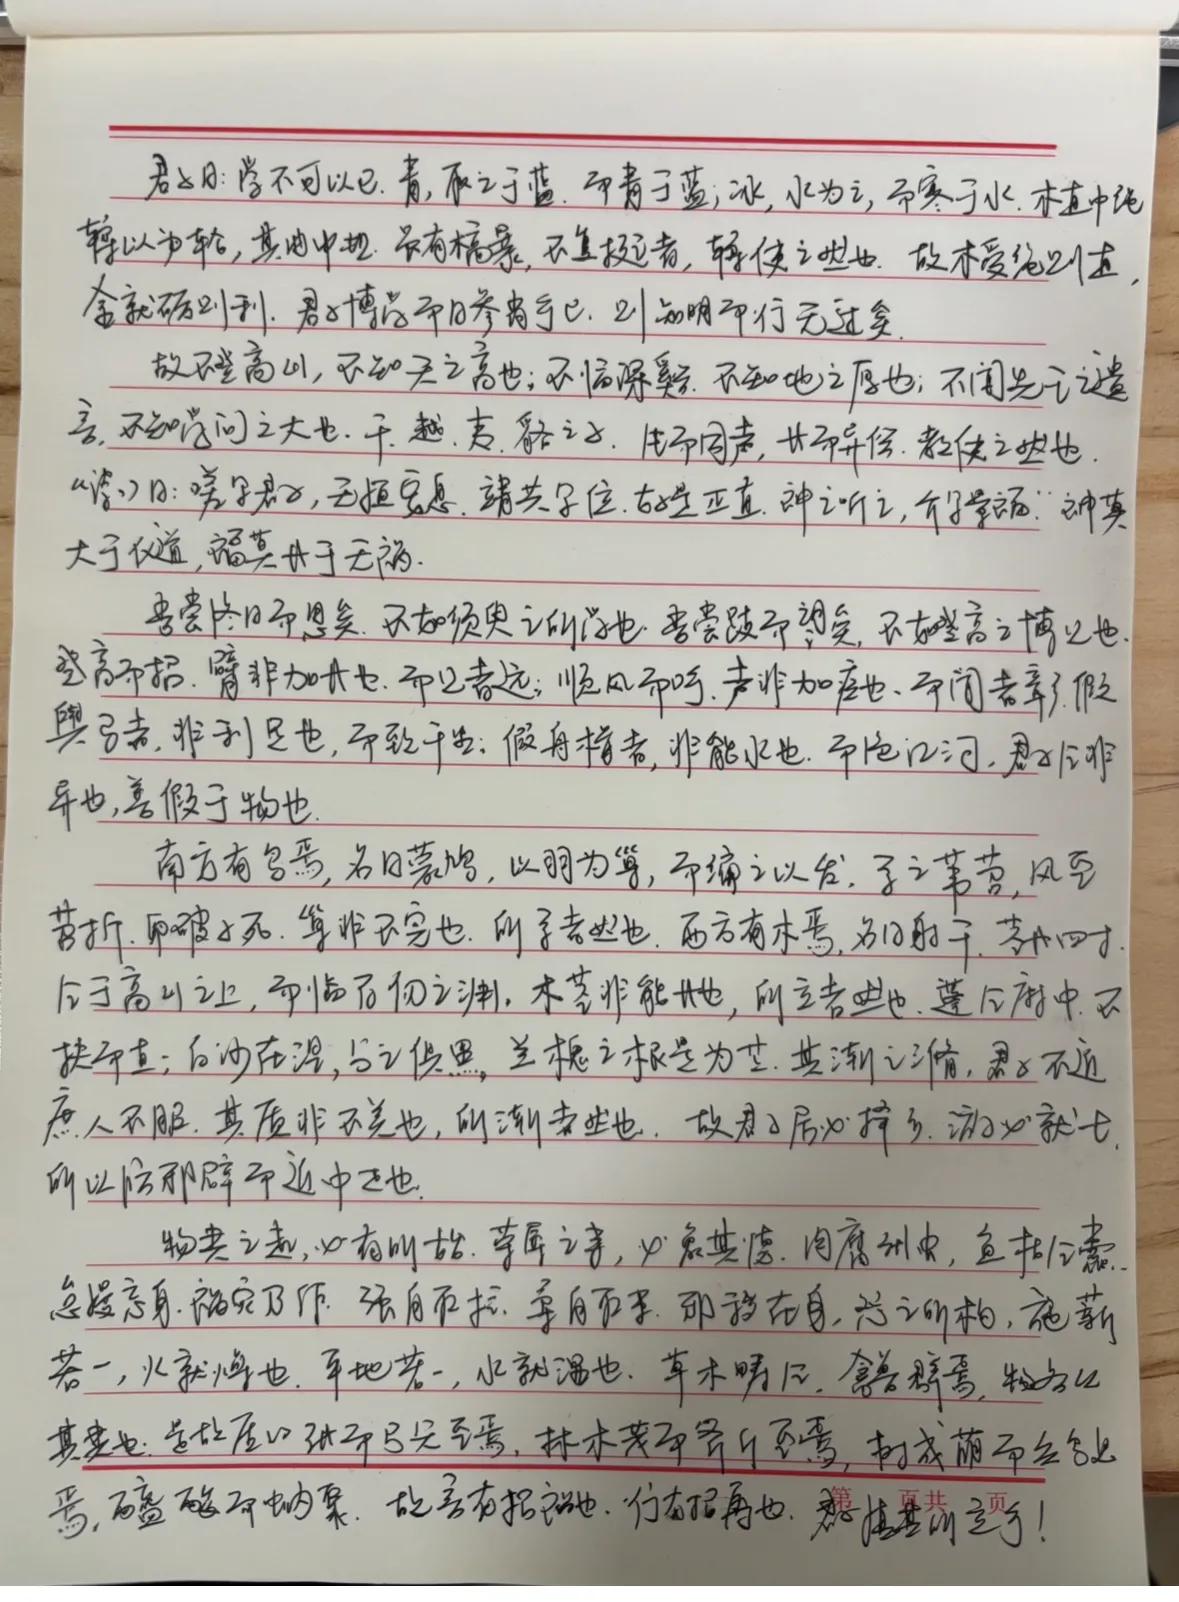 君子曰：学不可以已．青，取之于蓝．而青于蓝；冰，水为之，而寒于水．木直中绳
輮以为轮，其曲中规．虽有槁暴，不复挺者，輮使之然也．故木受绳则直，
金就砺则利．君子博学而日参省乎己．则知明而行无过矣．
故不登高山，不知天之高也；不临深谿．不知地之厚也；不闻先王之遗
言，不知学问之大也．干．越．夷．貉之子．生而同声，长而异俗．教使之然也．
《诗》曰：嗟尔君子，无恒安息．靖共尔位．好是正直．神之听之，介尔景福．神莫
大于化道，福莫长于无祸．
吾尝终日而思矣．不如须臾之所学也．吾尝跂而望矣，不如登高之博见也．
登高而招．臂非加长也．而见者远；顺风而呼．声非加疾也、而闻者彰．假
舆马者，非利足也，而致千里；假舟楫者，非能水也．而绝江河．君子生非
异也，善假于物也．
南方有鸟焉，名曰蒙鸠，以羽为巢，而编之以发．系之苇苕，风至
苕折．卵破子死．巢非不完也．所系者然也．西方有木焉，名曰射干．茎长四寸．
生于高山之上，而临百仞之渊．木茎非能长也，所立者然也．蓬生麻中．不
扶而直；白沙在涅，与之俱黑．兰槐之根是为芷．其渐之滫．君子不近
庶人不服．其质非不美也，所渐者然也．故君子居必择乡．游必就士．
所以防邪辟而近中正也．
物类之起，必有所始．荣辱之来，必象其德．肉腐出虫，鱼枯生蠹．
怠慢忘身．祸灾乃作．强自取柱．柔自取束．邪秽在身，怨之所构，施薪
若一，火就燥也．平地若一，水就湿也．草木畴生．禽兽群焉，物各从
其类也．是故质的张而弓矢至焉，林木茂而斧斤至焉，树成荫而众鸟息
焉，醯酸而蚋聚．故言有招祸也．行有招辱也．君子慎其所立乎！
第 页共 页